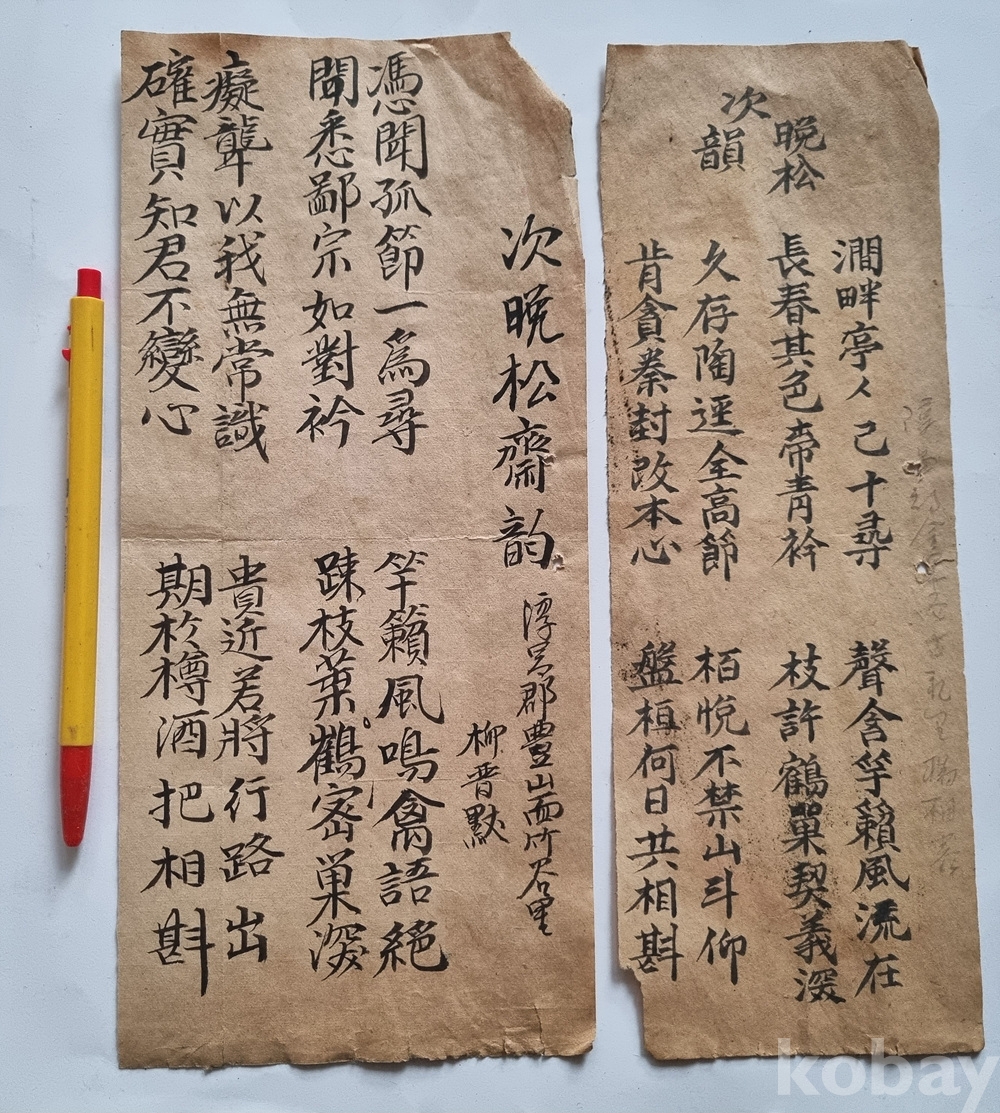 晩松
次韻
澗畔亭〻已十尋 聲含竽籟風流在
長春其色帝靑衿 枝許鶴巢契義深
久存陶逕全高節 栢悅不禁山斗仰
肯貪秦封改本心 盤桓何日共相斟
次晩松齋韵
淳昌郡豊山面竹谷里
柳晋默
憑聞孤節一爲尋 竽籟風鳴禽語絕
聞悉鄙宗如對衿 踈枝葉鶴密巢深
癡聾以我無常識 貴近若將行路出
確實知君不變心 期於樽酒把相斟
kobay